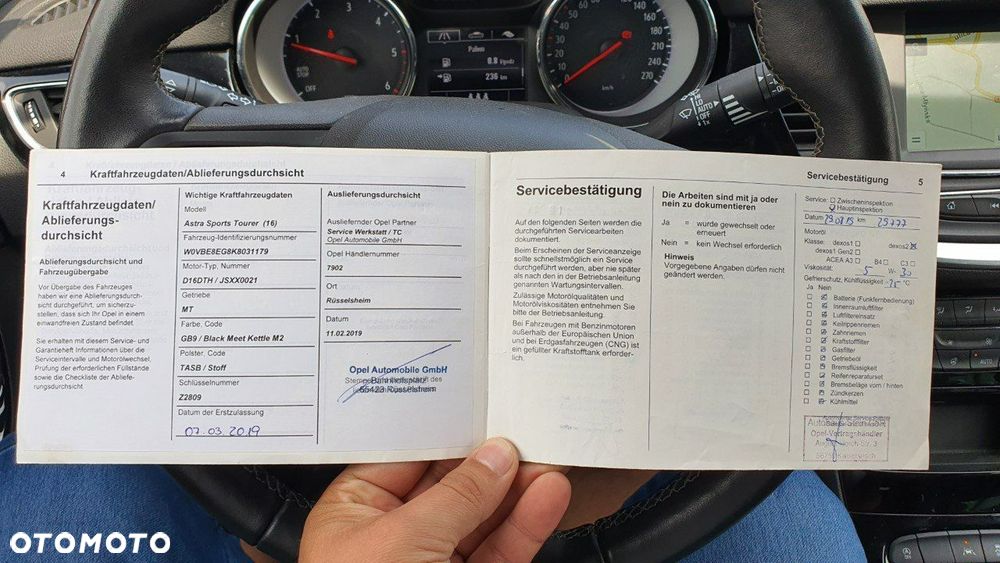 1
2
4
5
6
AUTO
STOP
Paliwo
0.8 l/godz
236 km
60
80
100
120
140
160
180
210
240
270
km/h
HI
LO
AUTO
OFF
1x
4 Kraftfahrzeugdaten/Ablieferungsdurchsicht
Kraftfahrzeugdaten/
Ablieferungs-
durchsicht
Ablieferungsdurchsicht und
Fahrzeugübergabe
Vor Übergabe des Fahrzeuges
haben wir eine Ablieferungsdurch-
sicht durchgeführt, um sicherzu-
stellen, dass Ihr Opel in einem
einwandfreien Zustand befindet.
Sie erhalten mit diesem Service- und
Garantieheft Informationen über die
Serviceintervalle und Motorölwechsel,
Prüfung der erforderlichen Füllstände
sowie die Checkliste der Abliefe-
rungsdurchsicht.
Wichtige Kraftfahrzeugdaten
Modell
Astra Sports Tourer (16)
Fahrzeug-Identifizierungsnummer
W0VBE8EG8K8031179
Motor-Typ, Nummer
D16DTH / JSXX0021
Getriebe
MT
Farbe, Code
GB9 / Black Meet Kettle M2
Polster, Code
TASB / Stoff
Schlüsselnummer
Z2809
Datum der Erstzulassung
07.03.2019
Auslieferungsdurchsicht
Ausliefernder Opel Partner
Service Werkstatt / TC
Opel Automobile GmbH
Opel Händlernummer
7902
Ort
Rüsselsheim
Datum
11.02.2019
Opel Automobile GmbH
Bahnhofsplatz
65423 Rüsselsheim
Servicebestätigung 5
Servicebestätigung
Auf den folgenden Seiten werden die
durchgeführten Servicearbeiten
dokumentiert.
Beim Erscheinen der Serviceanzeige
sollte schnellstmöglich ein Service
durchgeführt werden, aber nie später
als nach den in der Betriebsanleitung
genannten Wartungsintervallen.
Zulässige Motorölqualitäten und
Motorölviskositäten entnehmen Sie
bitte der Betriebsanleitung.
Bei Fahrzeugen mit Benzinmotoren
außerhalb der Europäischen Union
und bei Erdgasfahrzeugen (CNG) ist
ein gefüllter Kraftstofftank erforder-
lich.
Die Arbeiten sind mit ja oder
nein zu dokumentieren
Ja = wurde gewechselt oder
erneuert
Nein = kein Wechsel erforderlich
Hinweis
Vorgegebene Angaben dürfen nicht
geändert werden.
Service: Zwischeninspektion
Hauptinspektion
Datum 29.08.19 km 29777
Motoröl
Klasse: dexos1 dexos2
dexos1 Gen2
ACEA A3 B4 C3
Viskosität: 5 W- 30
Gefrierschutz, Kühlflüssigkeit -25 °C
Ja Nein
Batterie (Funkfernbedienung)
Innenraumluftfilter
Luftfiltereinsatz
Keilrippenriemen
Zahnriemen
Kraftstofffilter
Gasfilter
Getriebeöl
Bremsflüssigkeit
Reifenreparaturset
Bremsbeläge vorn / hinten
Zündkerzen
Kühlmittel
Opel-Vertragshändler
OTOMOTO